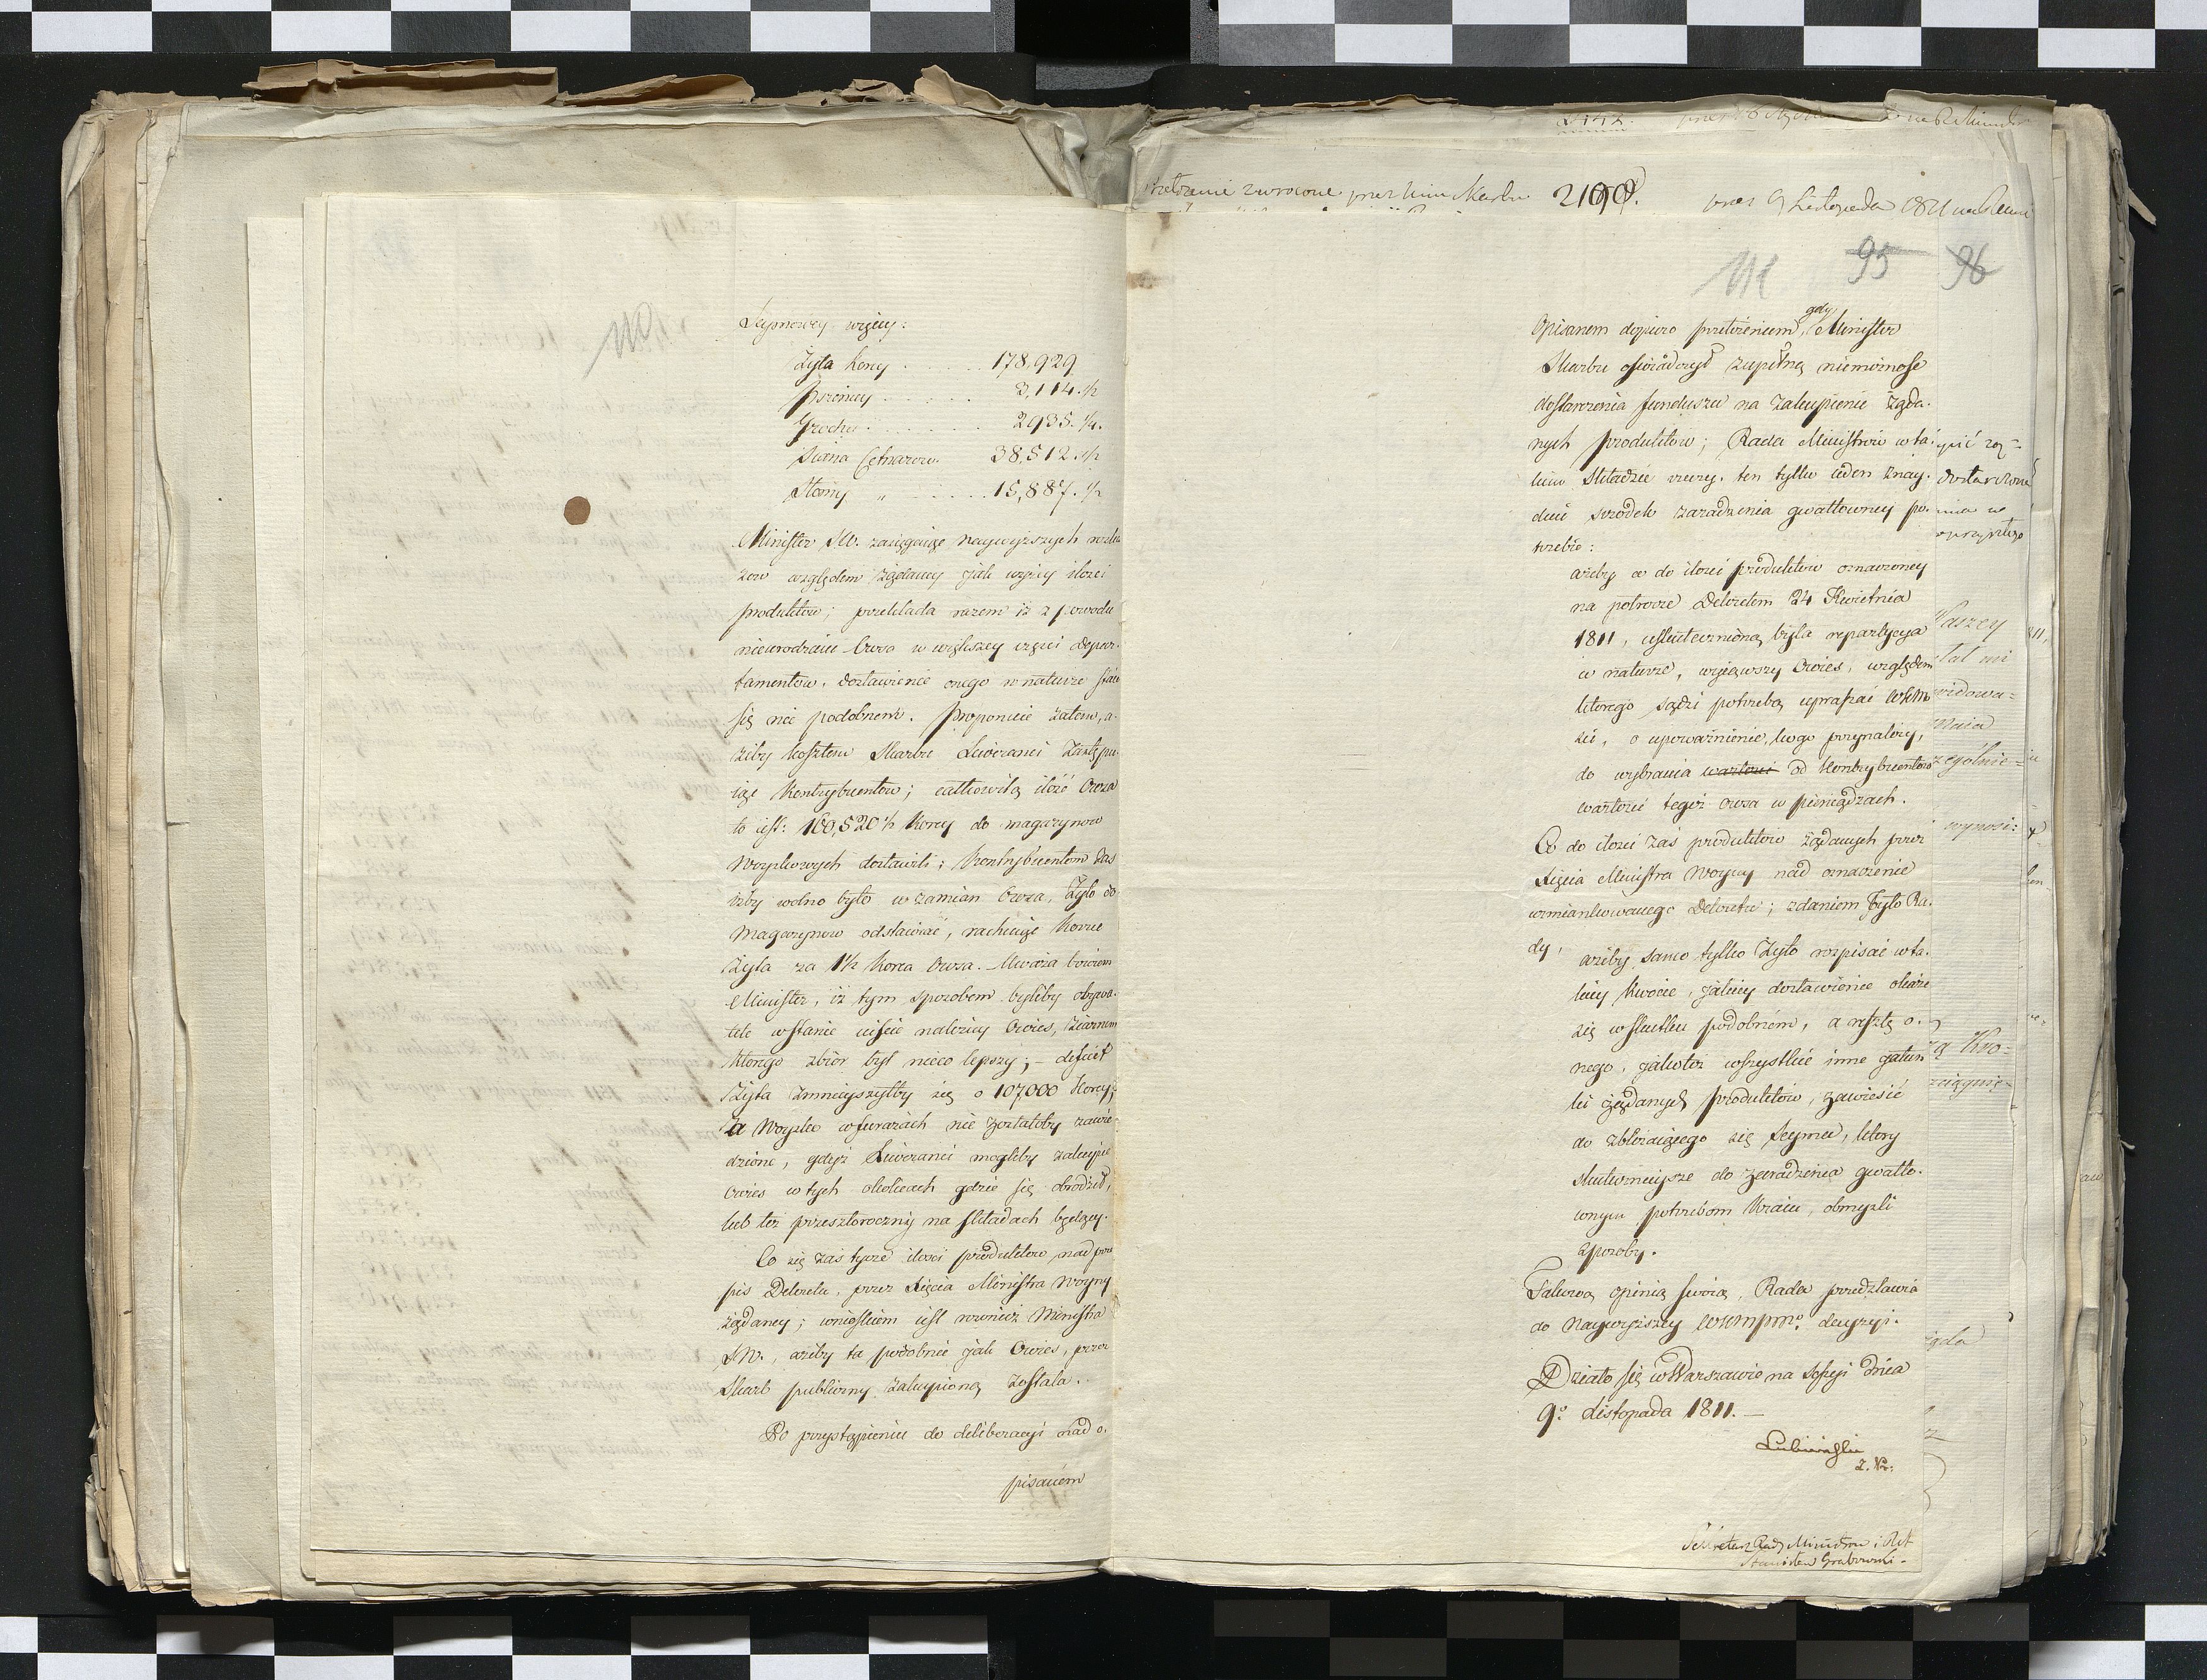 110
Seymowey więcy:
Żyta Korcy . . . . . 178,929
Pszenicy . . . . . 3,114. 1/2
Grochu . . . . . 2935. 1/4.
Siana Cętnarow. 38,512. 1/2
Słomy " . . . . . 15,887. 1/2
Minister SW. zasięgaiąc naywyższych
zow względem żądaney jak wyżey ilości
produktow; przekłada razem iż z powodu
nieurodzaiu Owsa w większey części depar-
tamentow, dostawienie onego w naturze staie
się nie podobnem. Proponuie zatem, a-
żeby kosztem Skarbu Liweranci zastępu-
iąc Kontrybuentow; całkowitą ilość Owsa
to iest: 160,520 1/2 Korcy do magazynow
Woyskowych dostawili; Kontrybuentom zaś
iżby wolno było w zamian Owsa, Żyto do
Magazynow odstawiać, rachuiąc Korzec
Żyta za 1 1/2 Korca Owsa. Uważa bowiem
Minister, iż tym sposobem byliby obywa-
tele w stanie uiście należny Owies, ziarnem
ktorego zbiór był nieco lepszy; – deficit
Żyta zmnieyszyłby się o 107,000 Korcy;
a Woysko w furażach nie zostałoby zawie-
dzione, gdyż Liweranci mogliby zakupić
Owies w tych okolicach gdzie się obrodził,
lub też przeszłoroczny na składach będący.
Co się zaś tycze ilości produktow nad prze
pis Dekretu, przez Xięcia Ministra Woyny
żądaney; wnioskiem iest rownież Ministra
SW., ażeby ta podobnie jak Owies, przez
Skarb publiczny zakupioną została.
Po przystąpieniu do deliberacyi nad o-
pisanem
zwrocone przez Min Skarbu 2190. prez 9 Listopada 1811
111 95 96
opisanem dopiero przełożeniem, gdy Minister
Skarbu oświadczył zupełną niemożność
dostarczenia funduszu na zakupienie żąda-
nych produktow; Rada Ministrow w ta-
kim składzie rzeczy, ten tylko ieden znay-
duie srzodek zaradzenia gwałtowney po-
trzebie:
ażeby co do ilości produktow oznaczoney
na potrzeby Dekretem 24 Kwietnia
1811, uskutecznioną była repartycya
w naturze, wyiąwszy Owies, względem
ktorego sądzi potrzebą upraszać WKM
ści, o upoważnienie, kogo przynależy,
do wybrania wartości od Kontrybuentow
wartości tegoż owsa w pieniądzach.
Co do ilości zaś produktow żądanych przez
Xięcia Ministra Woyny nad oznaczenie
wzmiankowanego Dekretu; zdaniem było Ra-
dy,
ażeby samo tylko Żyto rozpisać w ta-
kiey Kwocie, jakiey dostawienie okaże
się w skutku podobném, a resztę o-
nego, jakoteż wszystkie inne gatun
ki żądanych produktow, zawiesić
do zbliżaiącego się Seymu, ktory
skutecznieysze do zaradzenia gwałto-
wnym potrzebom Kraiu, obmyśli
sposoby.
Takową opinią swoią, Rada przedstawia
do Naywyższey WKMPmo. decyzyi.
Działo się w Warszawie na Sessyi dnia
9o. Listopada 1811. –
Lubieński
Z. Pr.
Sekretarz Rady Ministrow i RSt
Stanisław Grabowski